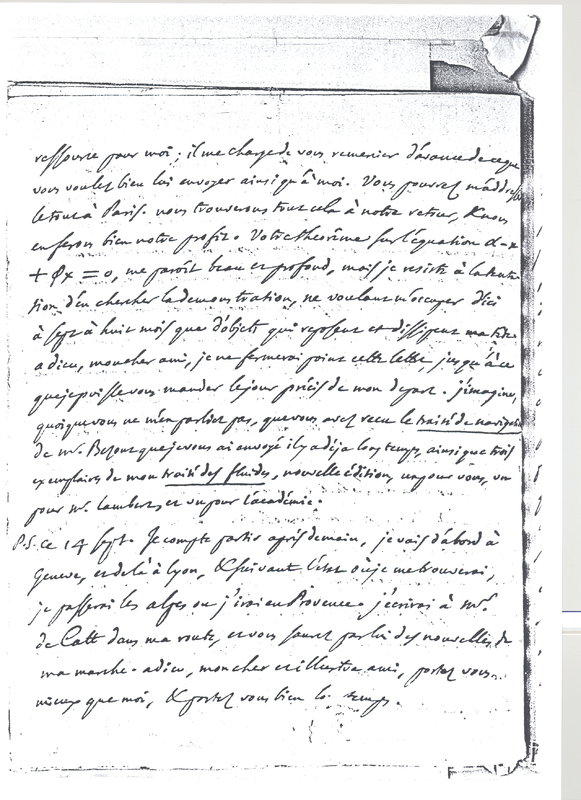 ressource pour moi; il me charge de vous remercier d'avance de ce que
vous voulez bien lui envoyer ainsi qu'à moi. Vous pourrez m'addresser
le tout à Paris. nous trouverons tout cela à notre retour, & nous
en ferons bien notre profit. Votre théorème sur l'équation α - x
+ φx = 0, me paroît beau et profond, mais je resiste à la tenta
tion d'en chercher la demonstration, ne voulant m'occuper d'ici
à sept à huit mois que d'objets qui reposent et dissipent ma tête
adieu, mon cher ami, je ne fermerai point cette lettre, jusqu'à ce
que je puisse vous mander le jour précis de mon depart. j'imagine,
quoique vous ne m'en parliez pas, que vous avez recu le traité de navigation
de mr. Bezout que je vous ai envoyé il y a déja longtemps, ainsi que trois
exemplaires de mon traité des fluides, nouvelle édition, un pour vous, un
pour mr. lambert, et un pour l'académie.
P.S. ce 14 sept. Je compte partir après demain, je vais d'abord à
Geneve, et de là à Lyon, & suivant l'état où je me trouverai,
je passerai les alpes ou j'irai en Provence. j'écrirai à mr.
de Catt dans ma route, et vous saurez par lui des nouvelles de
ma marche. adieu, mon cher et illustre ami, portez vous
mieux que moi, & portez vous bien temps.